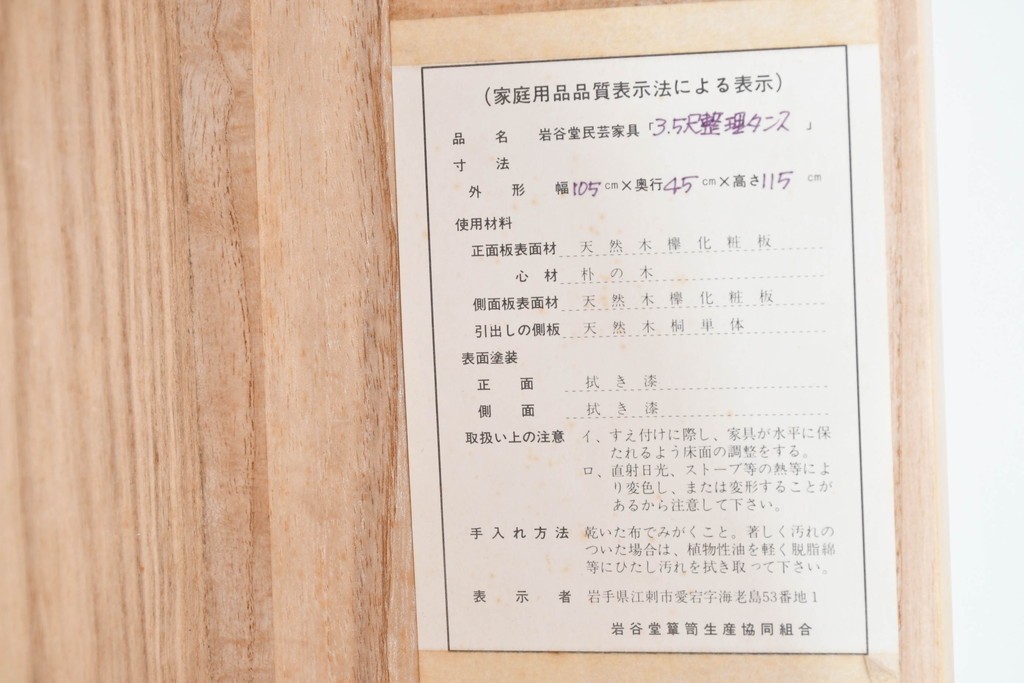 (家庭用品品質表示法による表示)
品 名 岩谷堂民芸家具「3.5尺整理タンス」
寸 法
外 形 幅105cm×奥行45cm×高さ115cm
使用材料
正面板表面材 天然木欅化粧板
心材 朴の木
側面板表面材 天然木欅化粧板
引出しの側板 天然木桐単体
表面塗装
正 面 拭き漆
側 面 拭き漆
取扱い上の注意 イ、すえ付けに際し、家具が水平に保
たれるよう床面の調整をする。
ロ、直射日光、ストーブ等の熱等によ
り変色し、または変形することが
あるから注意して下さい。
手入れ方法 乾いた布でみがくこと。著しく汚れの
ついた場合は、植物性油を軽く脱脂綿
等にひたし汚れを拭き取って下さい。
表 示 者 岩手県江刺市愛宕字海老島53番地1
岩谷堂簞笥生産協同組合